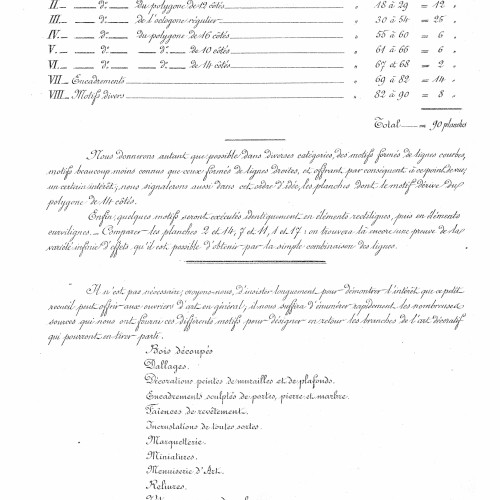 II. _ _ d°. _ _ du polygone de 12 côtés „ 18 à 29 = 12 „
III. _ _ d°. _ _ de l'octogone régulier „ 30 à 54 = 25 „
IV. _ _ d°. _ _ du polygone de 16 côtés „ 55 à 60 = 6 „
V. _ _ d°. _ _ d°. _ _ de 10 côtés „ 61 à 66 = 6 „
VI. _ _ d°. _ _ d°. _ _ de 14 côtés „ 67 et 68 = 2 „
VII _ Encadrements „ 69 à 82 = 14 „
VIII _ Motifs divers „ 82 à 90 = 8 „
Total = 90 planches
Nous donnerons autant que possible dans diverses catégories, des motifs formés de lignes courbes,
motifs beaucoup moins connus que ceux formés de lignes droites, et offrant, par conséquent à ce point de vue,
un certain intérêt; nous signalerons aussi dans cet ordre d'idée, les planches dont le motif dérive du
polygone de 14 côtés.
Enfin, quelques motifs seront exécutés identiquement en éléments rectilignes, puis en éléments
curvilignes. _ Comparer les planches 2 et 14, 7 et 11, 1 et 17: on trouvera là encore une preuve de la
variété infinie d'effets qu'il est possible d'obtenir par la simple combinaison des lignes.
Il n'est pas nécessaire, croyons-nous, d'insister longuement pour démontrer l'intérêt que ce petit
recueil peut offrir aux ouvriers d'art en général; il nous suffira d'énumérer rapidement les nombreuses
sources qui nous ont fourni ces différents motifs pour désigner en retour les branches de l'art décoratif
qui pourront en tirer parti.
Bois découpés
Dallages.
Décorations peintes de murailles et de plafonds.
Encadrements sculptés de portes, pierre et marbre.
Faïences de revêtement.
Incrustations de toutes sortes.
Marquetterie.
Miniatures.
Menuiserie d'Art.
Reliures.